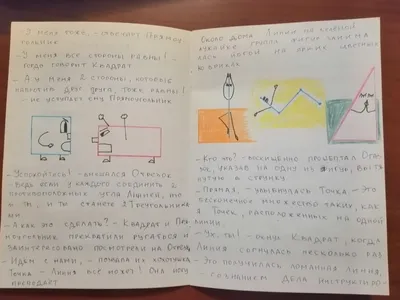 - У меня тоже, - отвечает Прямоу-
гольник
- У меня все стороны равны! -
гордо говорит Квадрат
- А у меня 2 стороны, которые
напротив друг друга, тоже равны!
- не уступает ему Прямоугольник
- Успокойтесь! - вмешался Отрезок
- Ведь если у каждого соединить 2
противоположных угла Линией, то
и ты, и ты станете Треугольника
ми
- А как это сделать? - Квадрат и Пря
моугольник прекратили ругаться и
заинтересованно посмотрели на Отрезок
- Идём с нами, - позвала их хохотушка
Точка - Линия всё может! Она могу
преподаёт
Около дома Линии на зелёной
лужайке группа фигур занима
лась йогой на ярких цветных
ковриках
- Кто это? - восхищённо прошептал Отре
зок, указав на одну из фигур, вытя
нутую в струнку.
- Прямая, - улыбнулась Точка. - Это
бесконечное множество таких, как
я Точек, расположенных на одной
линии.
- Ух, ты! - охнул Квадрат, когда
линия согнулась несколько раз
- Это получилась ломаная линия,
- со знанием дела